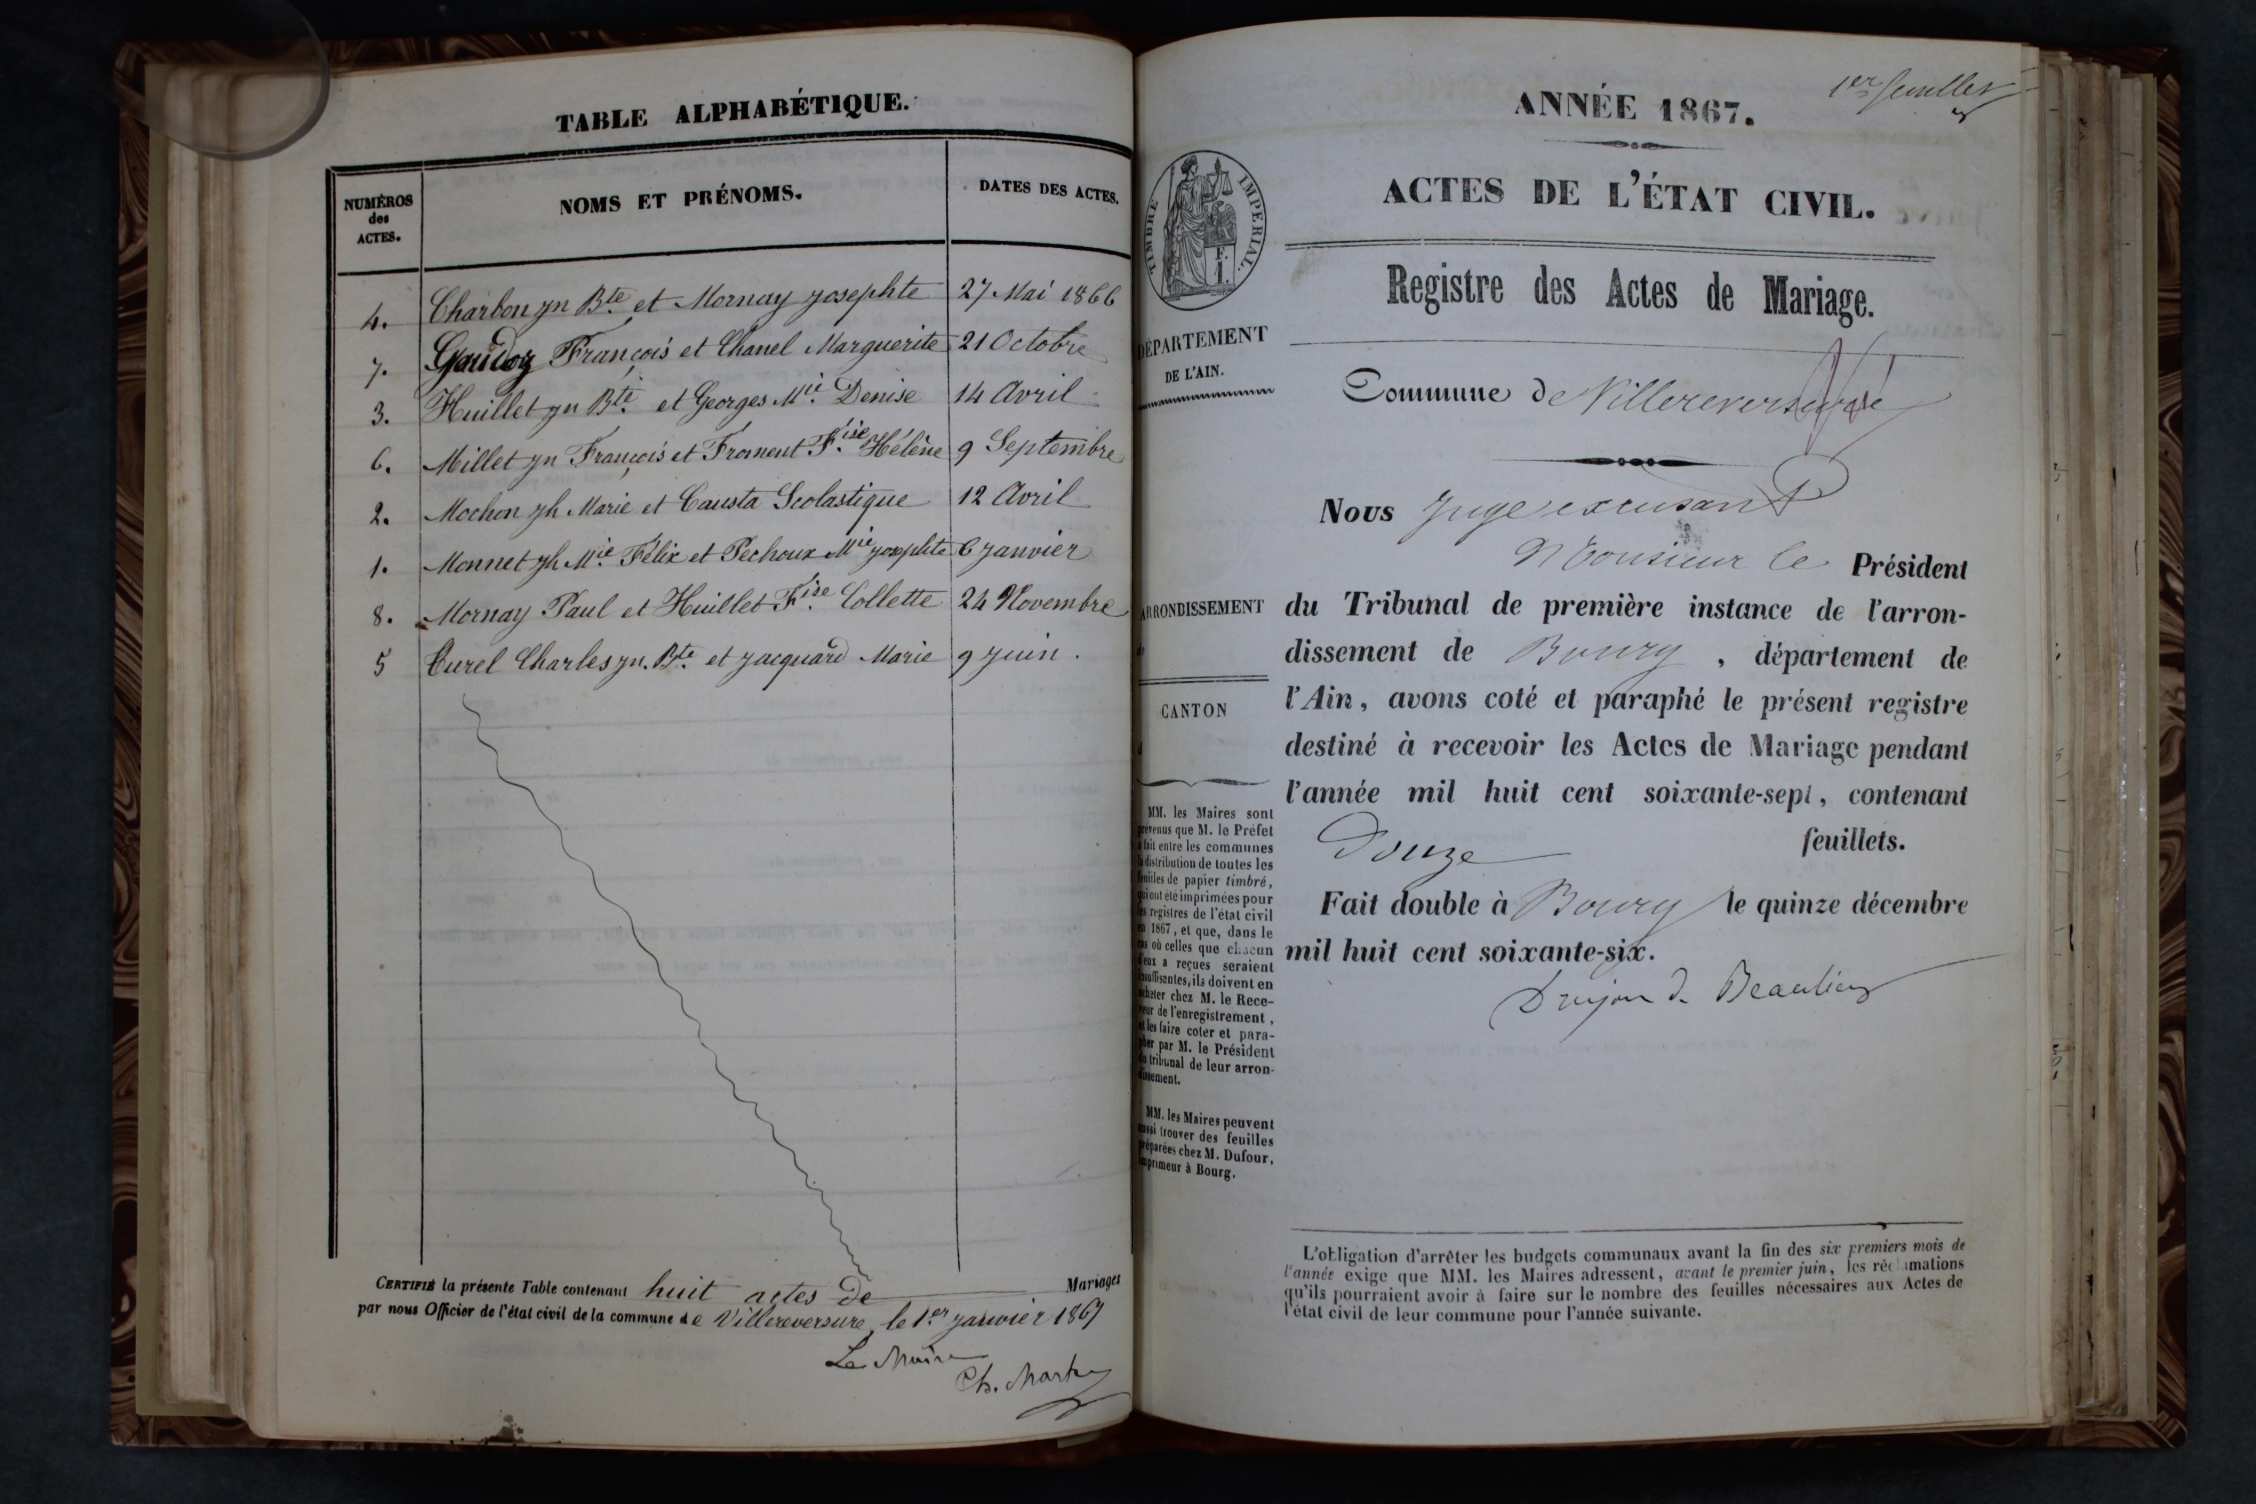 TABLE ALPHABÉTIQUE.
NUMÉROS
des
ACTES.
NOMS ET PRÉNOMS.
DATES DES ACTES.
4. Charbon Jn Bte et Mornay Josephte 27 Mai 1866
7. Gaudoz François et Chanel Marguerite 21 Octobre
3. Huillet Jn Bte et Georges Mie Denise 14 Avril
6. Millet Jn François et Froment Fise Hélène 9 Septembre
2. Mochon Jh Marie et Causta Scolastique 12 Avril
1. Monnet Jh Mie Félix et Pechoux Mie Josephte 6 Janvier
8. Mornay Paul et Huillet Fise Collette 24 Novembre
5 Curel Charles Jn. Bte et Jacquard Marie 9 Juin.
CERTIFIÉ la présente Table contenant huit actes de Mariages
par nous Officier de l'état civil de la commune de Villereversure, le 1er Janvier 1867
Le Maire
Ch. Martin
1er feuillet
ANNÉE 1867.
ACTES DE L'ÉTAT CIVIL.
Registre des Actes de Mariage.
TIMBRE IMPERIAL.
F.
1.
DÉPARTEMENT
DE L'AIN.
Commune de Villereversure
Nous Juge excusant
Monsieur le Président
du Tribunal de première instance de l'arron-
dissement de Bourg, département de
l'Ain, avons coté et paraphé le présent registre
destiné à recevoir les Actes de Mariage pendant
l'année mil huit cent soixante-sept, contenant
Douze feuillets.
Fait double à Bourg le quinze décembre
mil huit cent soixante-six.
Drujon de Beaulieu
ARRONDISSEMENT
de
CANTON
d
MM. les Maires sont
prévenus que M. le Préfet
a fait entre les communes
la distribution de toutes les
feuilles de papier timbré,
qui ont été imprimées pour
les registres de l'état civil
en 1867, et que, dans le
cas où celles que chacun
d'eux a reçues seraient
insuffisantes, ils doivent en
acheter chez M. le Rece-
veur de l'enregistrement,
et les faire coter et para-
pher par M. le Président
du tribunal de leur arron-
dissement.
MM. les Maires peuvent
aussi trouver des feuilles
préparées chez M. Dufour,
imprimeur à Bourg.
L'obligation d'arrêter les budgets communaux avant la fin des six premiers mois de
l'année exige que MM. les Maires adressent, avant le premier juin, les réclamations
qu'ils pourraient avoir à faire sur le nombre des feuilles nécessaires aux Actes de
l'état civil de leur commune pour l'année suivante.